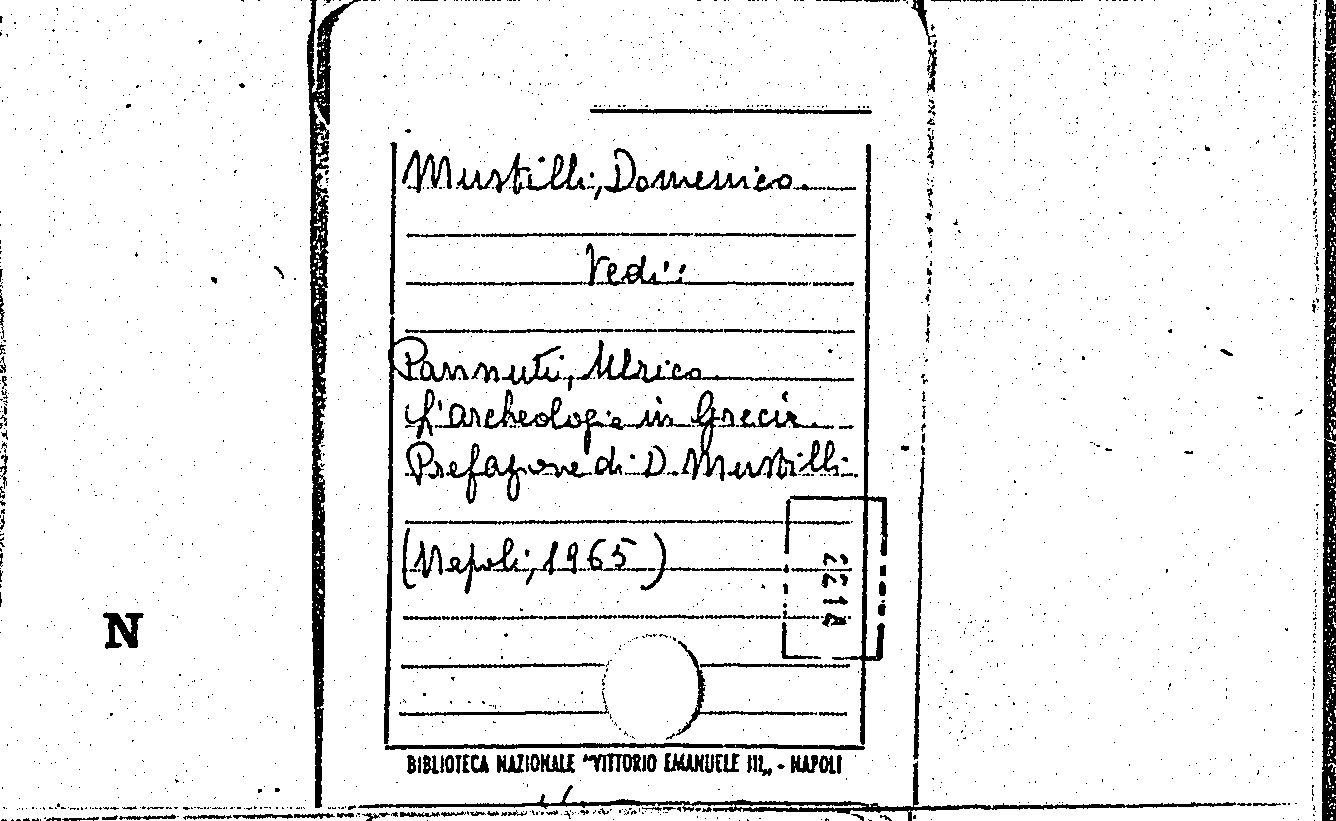 Mustilli, Domenico.
Vedi:
Pannuti, Ulrico
L'archeologia in Grecia.
Prefazione di D. Mustilli
(Napoli, 1965)
2214
N
BIBLIOTECA NAZIONALE "VITTORIO EMANUELE III„ - NAPOLI